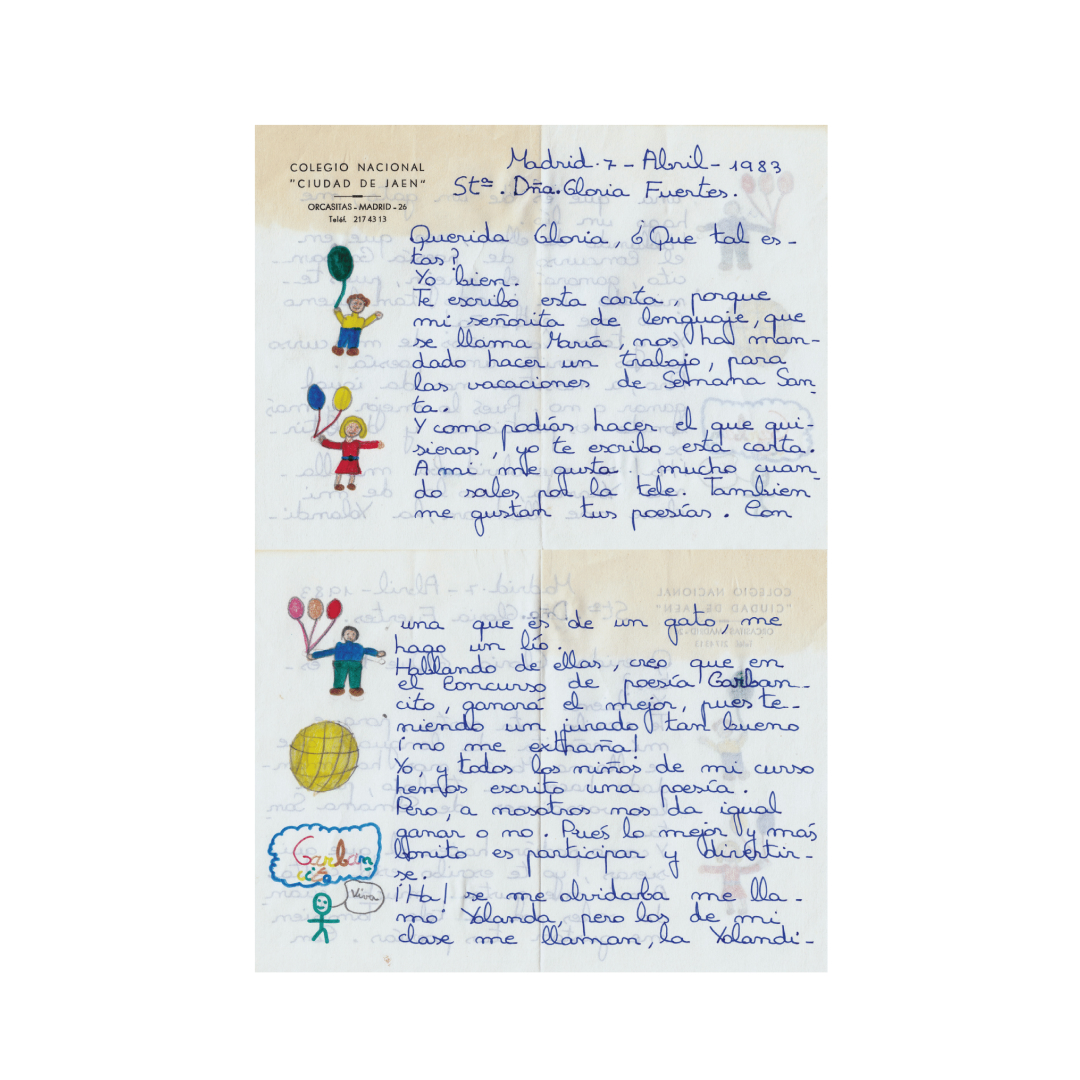 COLEGIO NACIONAL
"CIUDAD DE JAEN"
ORCASITAS - MADRID - 26
Teléf. 217 43 13
Madrid. 7 - Abril - 1983
Stª. Dña. Gloria Fuertes.
Querida Gloria, ¿Que tal es-
tas?
Yo bien.
Te escribo esta carta, porque
mi señorita de lenguaje, que
se llama María, nos ha man-
dado hacer un trabajo, para
las vacaciones de Semana San-
ta.
Y como podías hacer el que qui-
sieras, yo te escribo esta carta.
A mi me gusta mucho cuan-
do sales por la tele. Tambien
me gustan tus poesías. Con
una que es de un gato, me
hago un lío.
Hablando de ellas creo que en
el Concurso de poesía Garban-
cito, ganará el mejor, pues te-
niendo un jurado tan bueno
¡no me exthaña!
Yo, y todos los niños de mi curso
hemos escrito una poesía.
Pero, a nosotros nos da igual
ganar o no. Pues lo mejor y más
bonito es participar y divertir-
se.
¡Ha! se me olvidaba me lla-
mo Yolanda, pero los de mi
clase me llaman, la Yolandi-
Garban-
cito
Viva